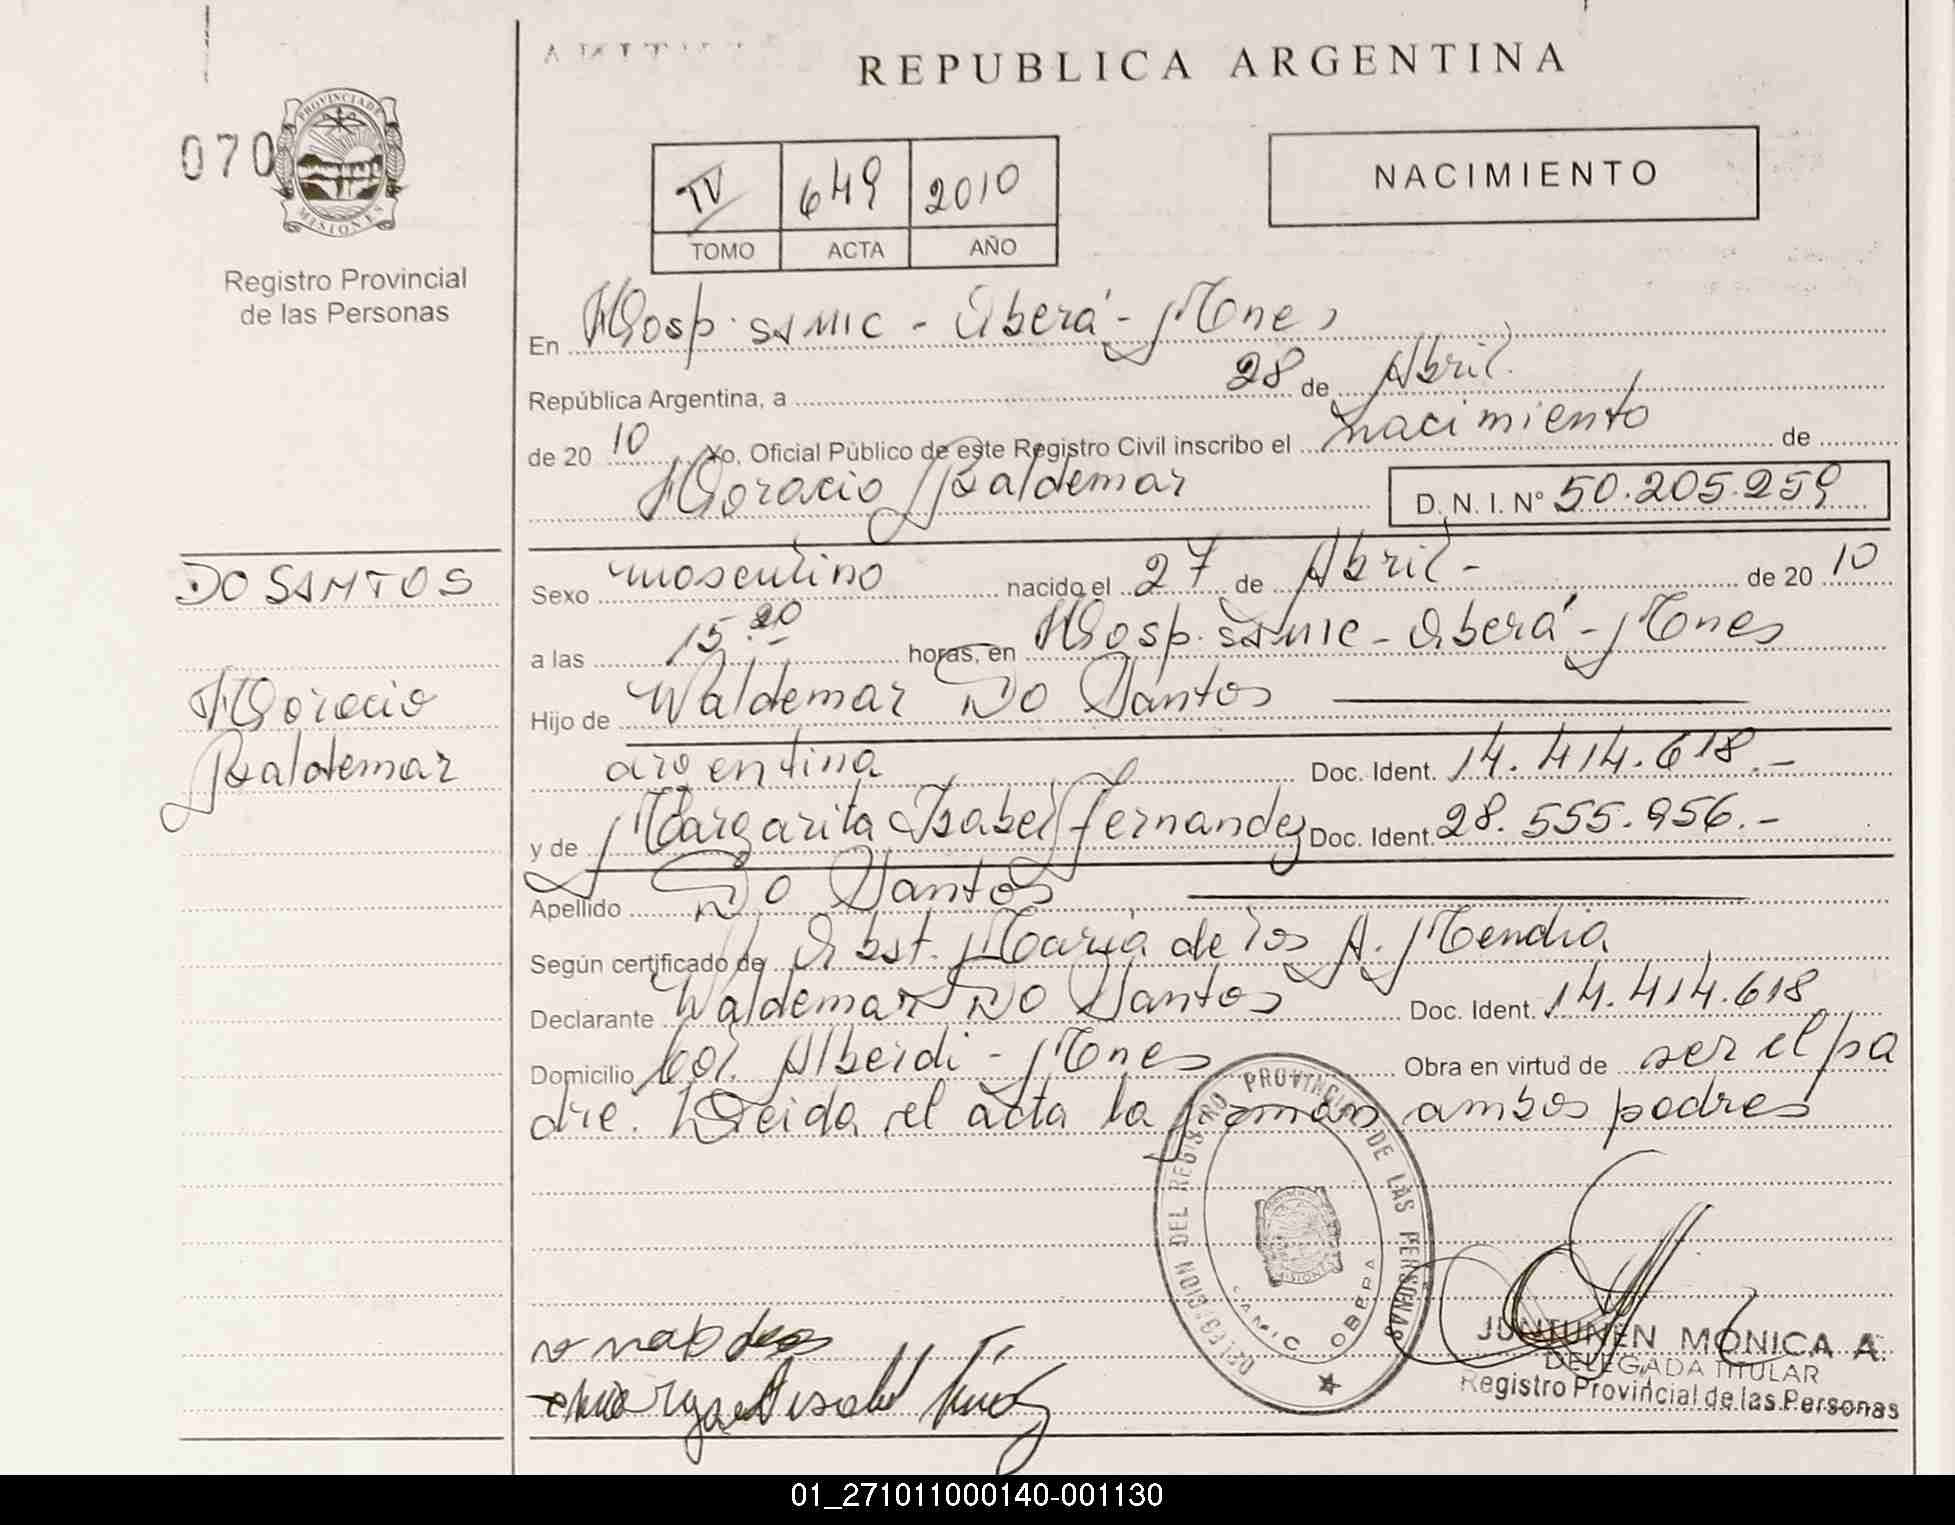 REPUBLICA ARGENTINA
070
PROVINCIA DE
MISIONES
Registro Provincial
de las Personas
IV 649 2010
TOMO ACTA AÑO
NACIMIENTO
En Hosp. SAMIC - Oberá - Mnes
República Argentina, a 28 de Abril
de 20 10 Yo, Oficial Público de este Registro Civil inscribo el nacimiento de
Horacio Baldemar D. N. I. Nº 50.205.259
DO SANTOS
Horacio
Baldemar
Sexo masculino nacido el 27 de Abril - de 20 10
a las 15.20 horas, en Hosp. SAMIC - Oberá - Mnes
Hijo de Waldemar Do Santos
argentina Doc. Ident. 14.414.618.-
y de Margarita Isabel Fernandez Doc. Ident. 28.555.956.-
Apellido Do Santos
Según certificado de Obst. María de los A. Mendia
Declarante Waldemar Do Santos Doc. Ident. 14.414.618
Domicilio Col. Alberdi - Mnes Obra en virtud de ser el pa
dre. Leida el acta la firman ambos padres
DELEGACION DEL REGISTRO PROVINCIAL DE LAS PERSONAS
SAMIC OBERA
JUNTUNEN MONICA A.
DELEGADA TITULAR
Registro Provincial de las Personas
01_271011000140-001130